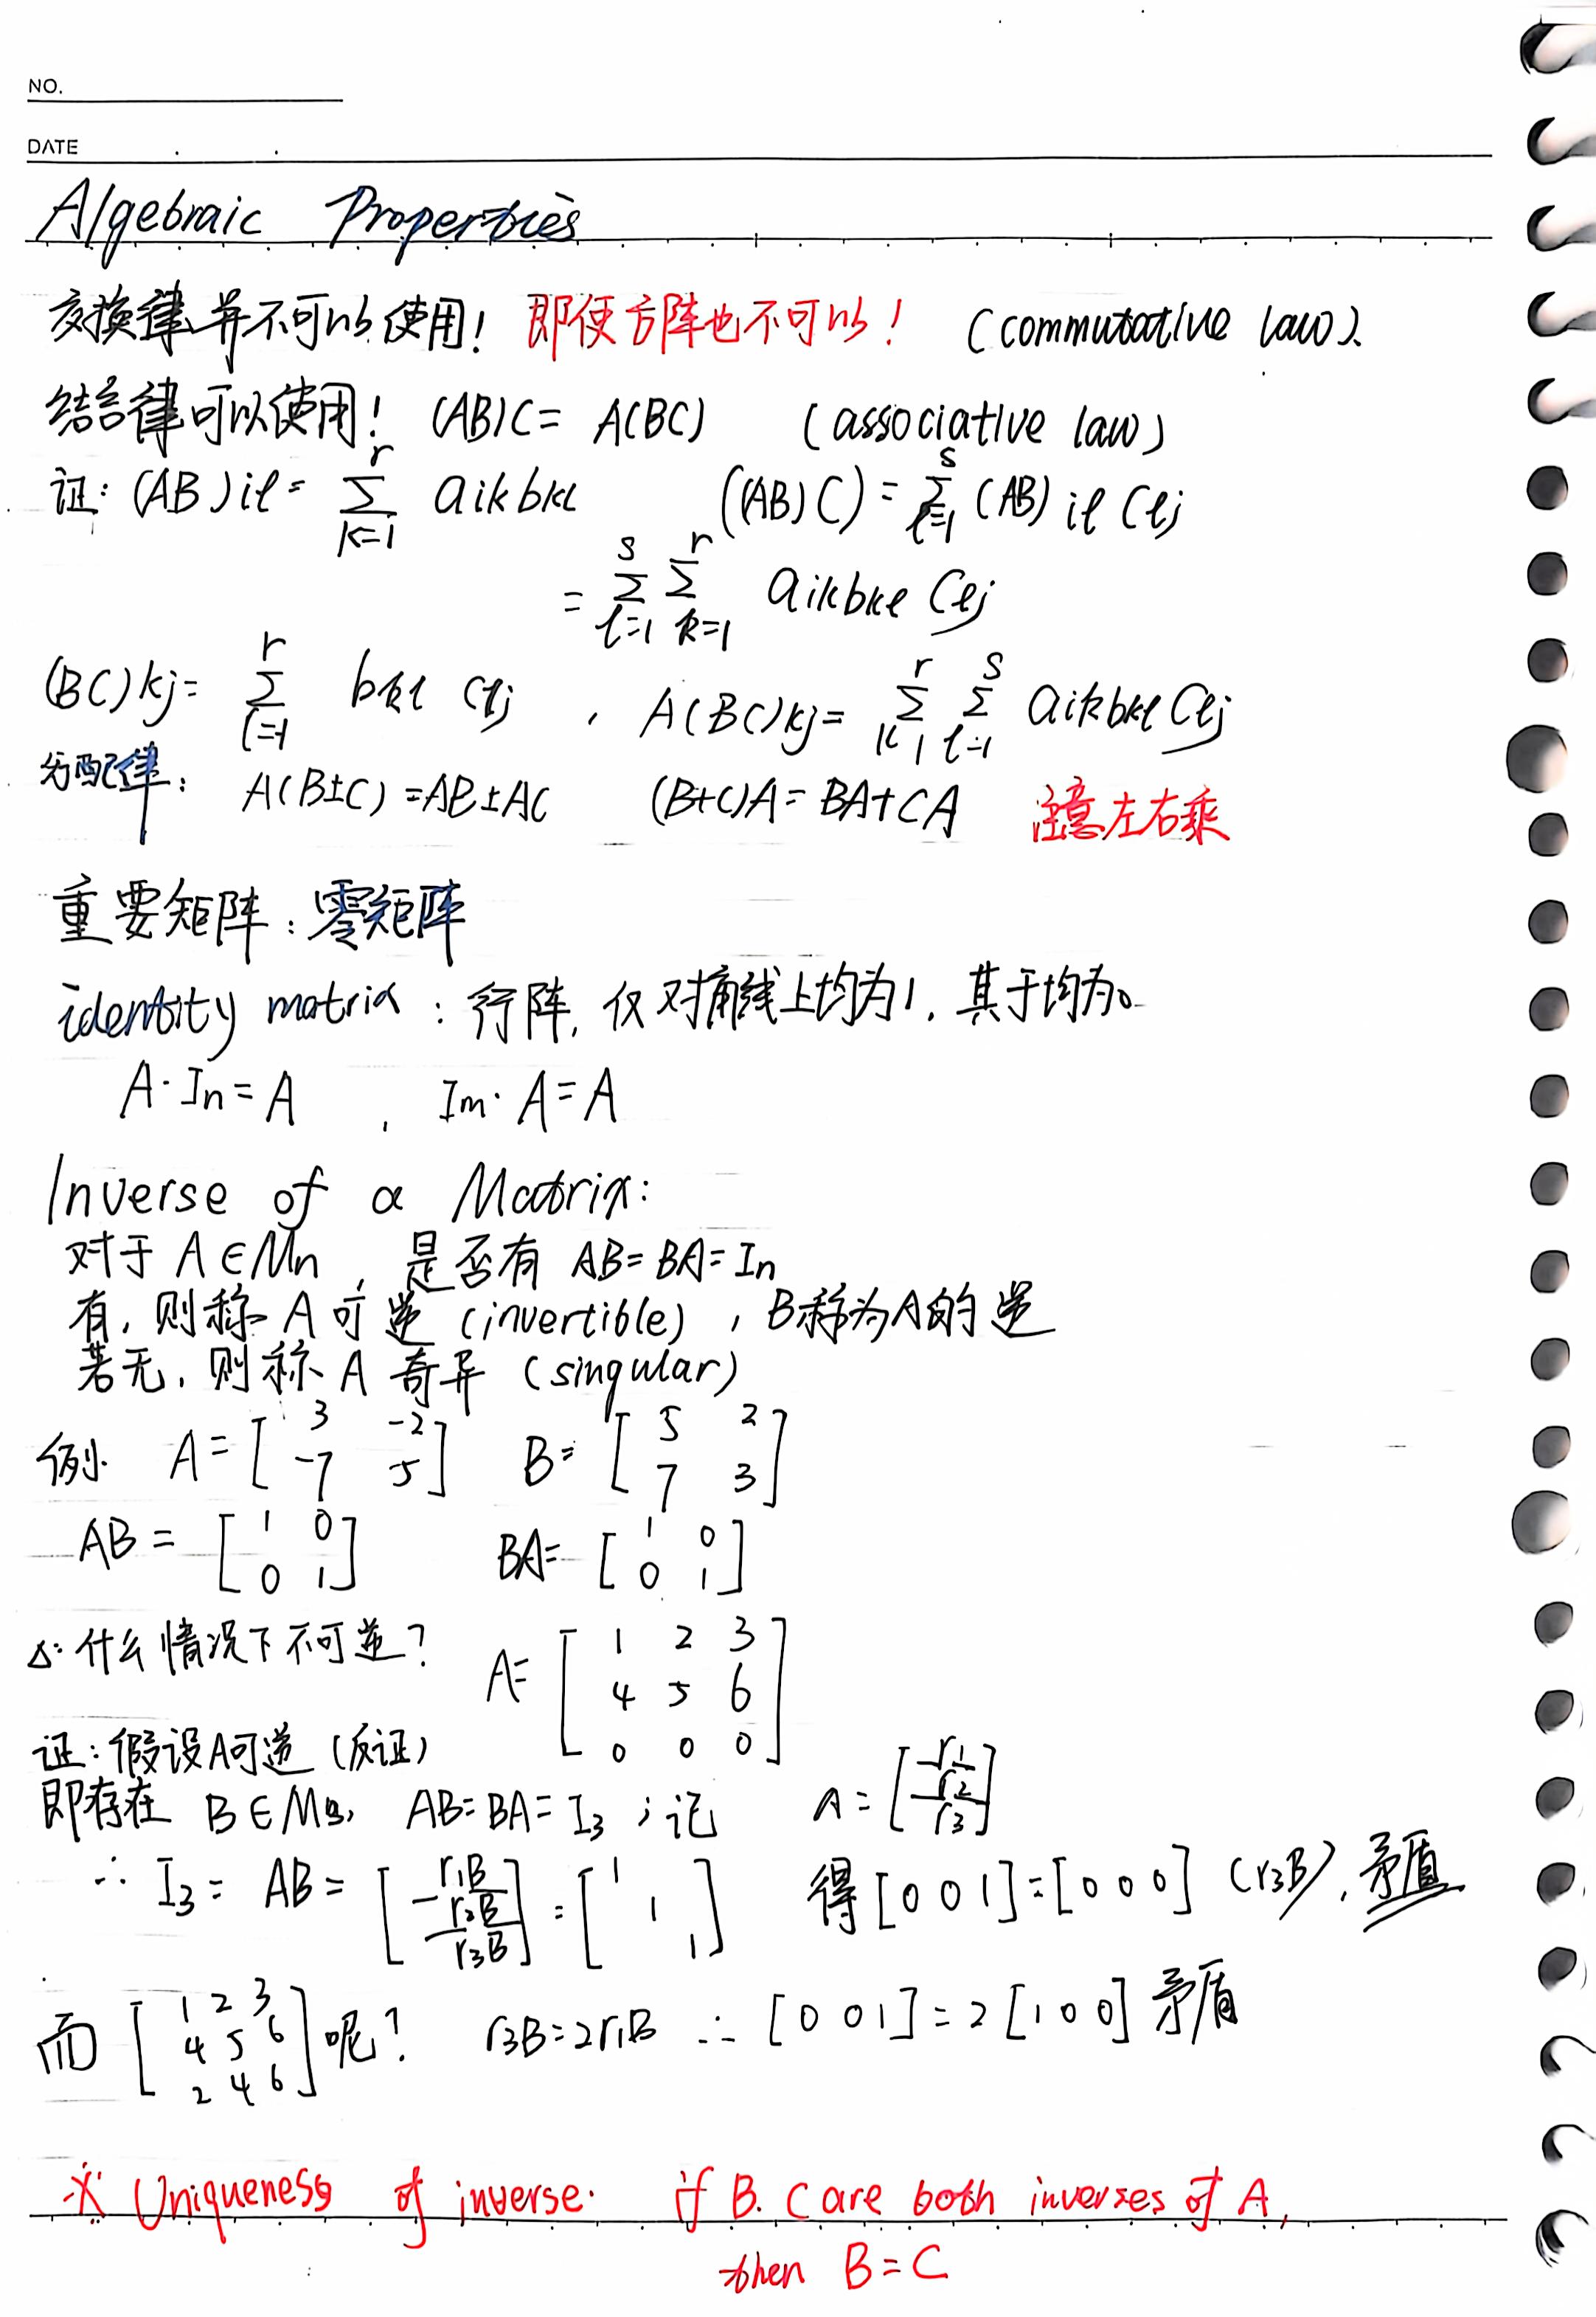 NO.
DATE
Algebraic Properties
交换律并不可以使用！ 即便方阵也不可以！ (commutative law).
结合律可以使用！ (AB)C = A(BC) (associative law)
证: (AB)iℓ = ∑_{k=1}^{r} aikbkℓ ((AB)C) = ∑_{ℓ=1}^{s} (AB)iℓ Cℓj
= ∑_{ℓ=1}^{s} ∑_{k=1}^{r} aikbkℓ Cℓj
(BC)kj = ∑_{l=1}^{r} bkl Clj , A(BC)kj = ∑_{k=1}^{r} ∑_{ℓ=1}^{s} aikbkℓ Cℓj
分配律: A(B±C) = AB±AC (B+C)A = BA+CA 注意左右乘
重要矩阵: 零矩阵
identity matrix: 行阵, 仅对角线上均为1, 其于均为0
A·In = A , Im·A = A
Inverse of a Matrix:
对于 A∈Mn , 是否有 AB = BA = In
有, 则称 A 可逆 (invertible) , B称为A的逆
若无, 则称 A 奇异 (singular)
例. A = [3 -2; -7 5] B = [5 2; 7 3]
AB = [1 0; 0 1] BA = [1 0; 0 1]
Δ: 什么情况下不可逆? A = [1 2 3; 4 5 6; 0 0 0]
证: 假设A可逆 (反证)
即存在 B∈M3, AB=BA=I3 ; 记 A = [r1; r2; r3]
∴ I3 = AB = [r1B; r2B; r3B] = [1 1 1] 得 [0 0 1] = [0 0 0] (r3B), 矛盾
而 [1 2 3; 4 5 6; 2 4 6] 呢? r3B = 2r1B ∴ [0 0 1] = 2[1 0 0] 矛盾
※ Uniqueness of inverse. if B. C are both inverses of A,
then B = C